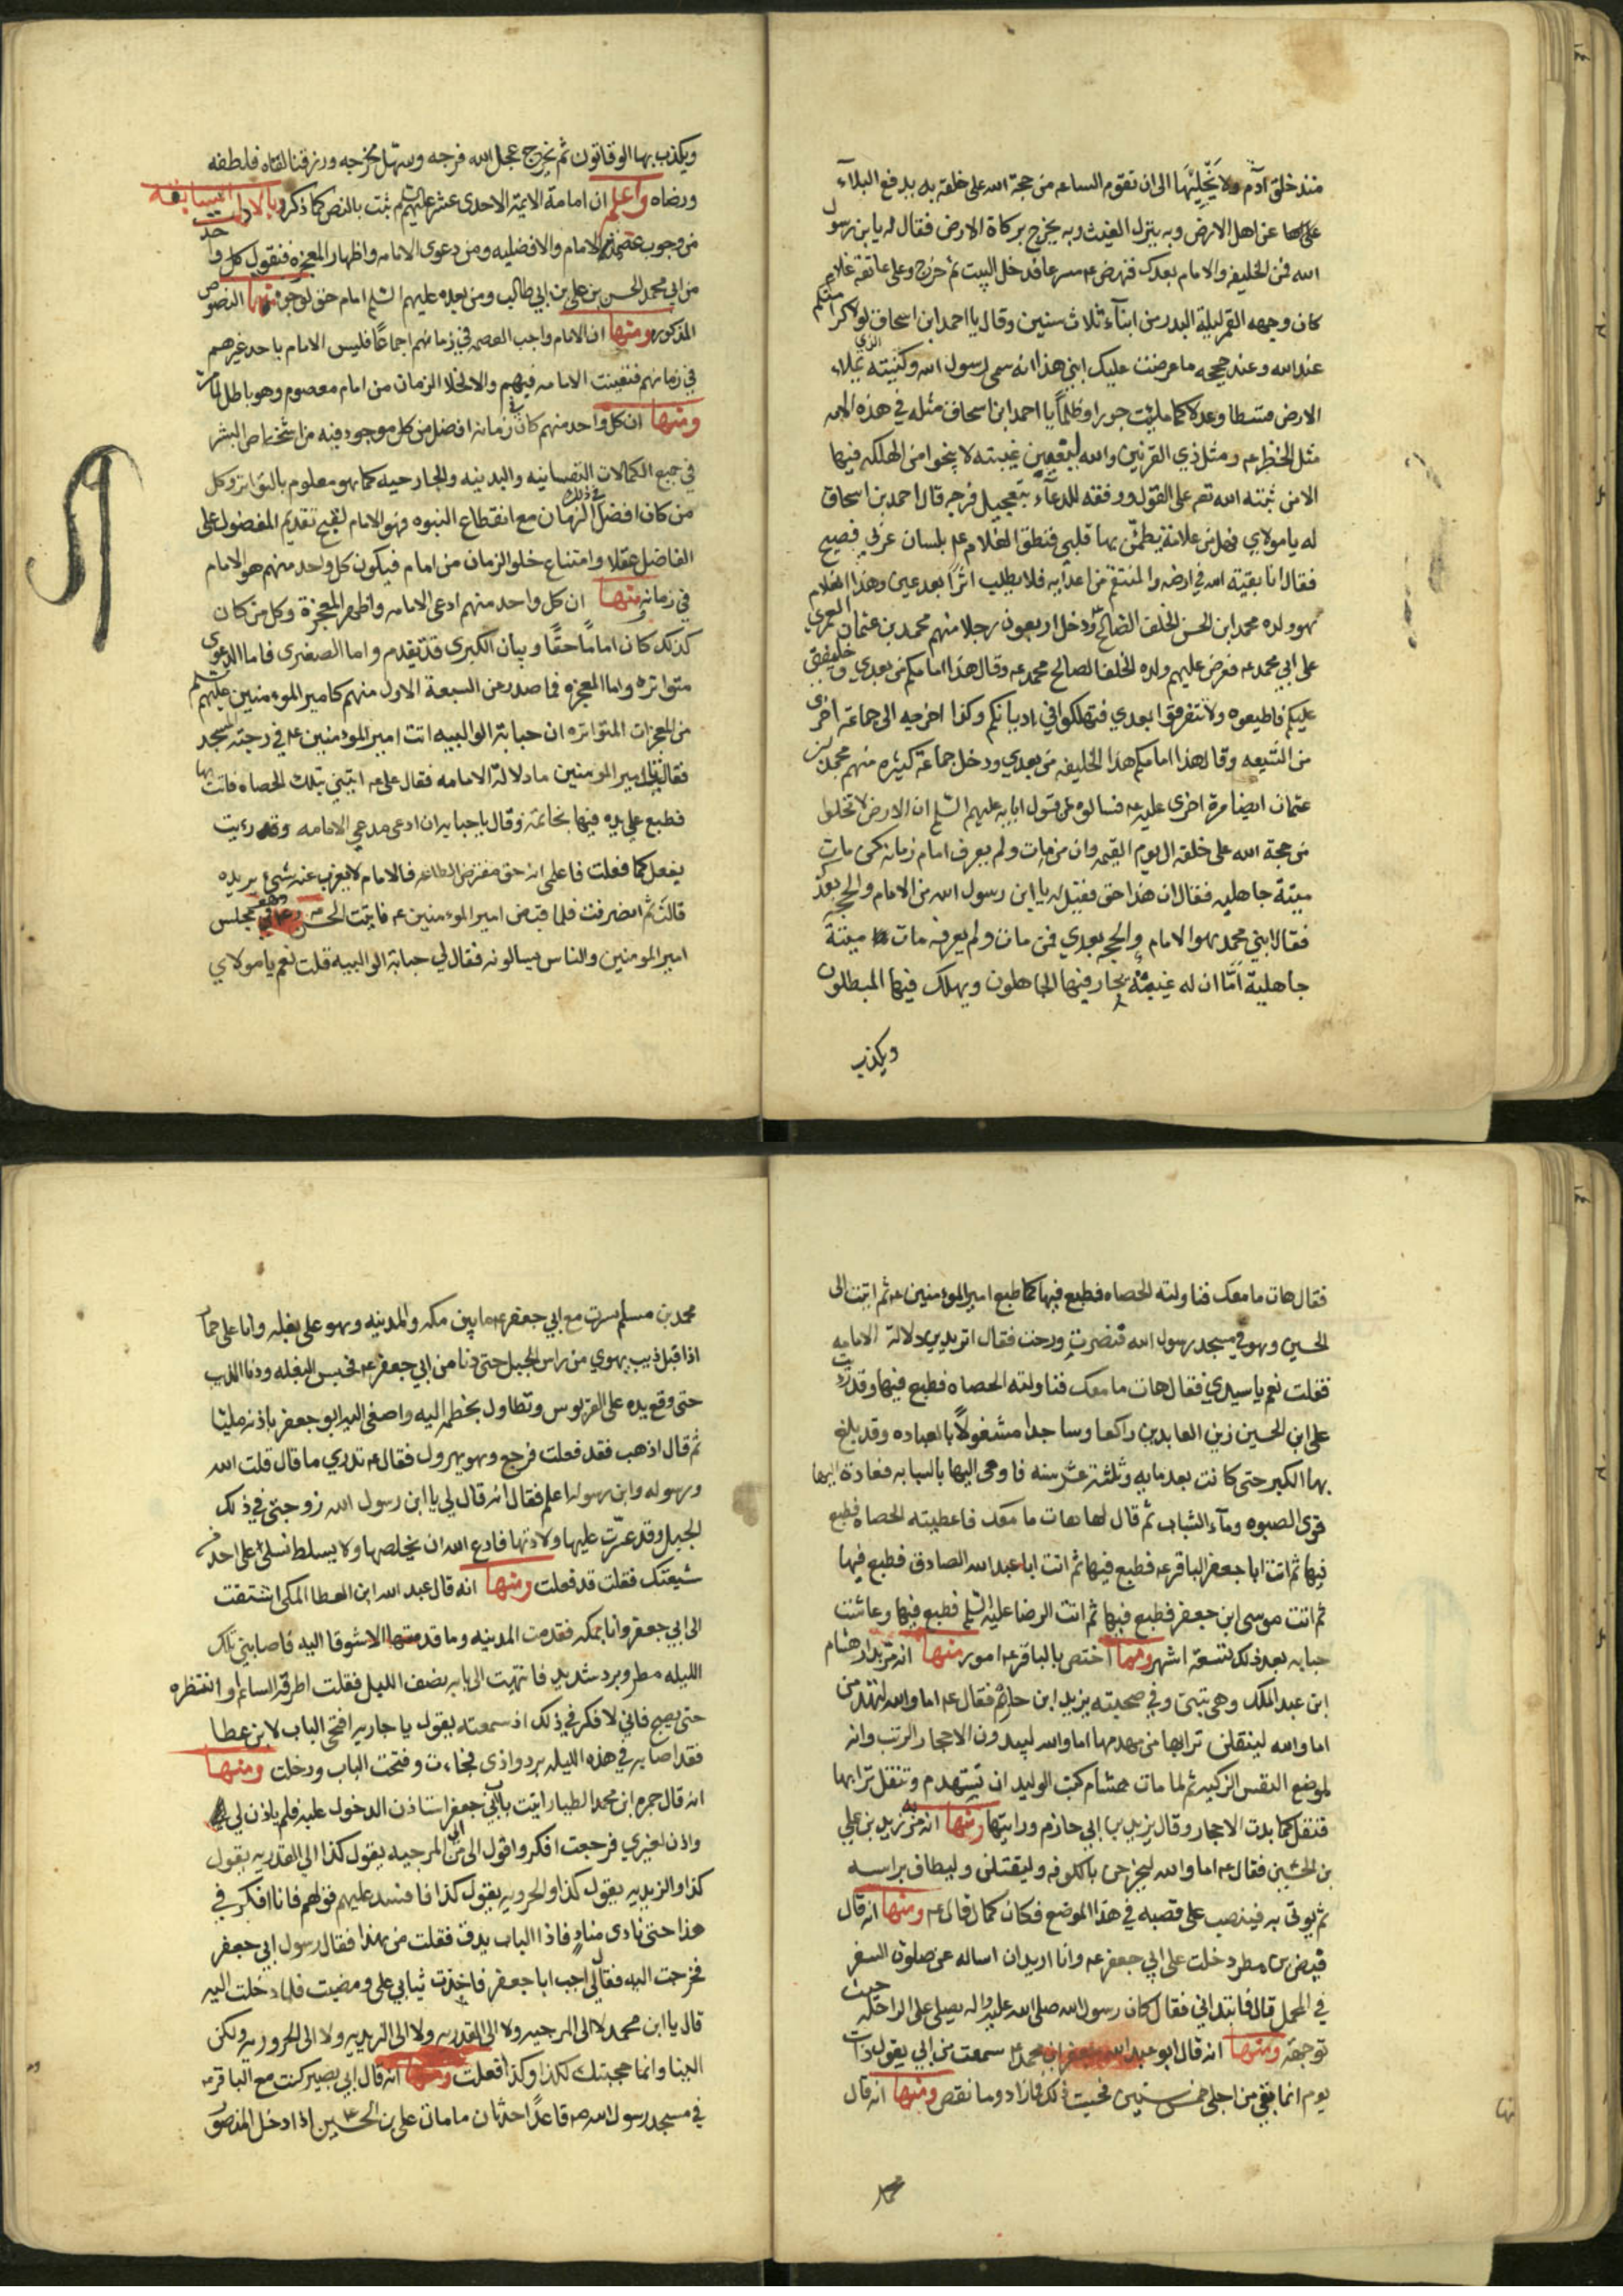 منذ خلق آدم ولا يخليها الى ان تقوم الساعه من حجة الله على خلقه به يدفع البلآء
عن اهل الارض وبه ينزل الغيث وبه يخرج بركاة الارض فقال له يا بن رسول
الله فمن الخليفه والامام بعدك فنهض عه مسرعا فدخل البيت ثم خرج وعلى عاتقه غلام
كان وجهه القمر ليلة البدر من ابنآء ثلاث سنين وقال يا احمد ابن اسحاق لولا كرامتكم
عند الله وعند حججه ما عرضت عليك ابني هذا انه سمى رسول الله وكنيته الذي يملاء
الارض قسطا وعدلا كما ملئت جورا وظلما يا احمد ابن اسحاق مثله في هذه الامه
مثل الخضر عه ومثل ذي القرنين والله ليغيبن غيبته لا ينجو من الهلكه فيها
الا من ثبته الله تعم على القول ووفقه للدعآء بتعجيل فرجه قال احمد بن اسحاق
له يا مولاي فهل من علامة يطمئن بها قلبى فنطق الغلام عه بلسان عربي فصيح
فقال انا بقية الله في ارضه والمنتقم من اعدآيه فلا يطلب اثرا بعد عين وهذا الغلام
هو ولده محمد ابن الحسن الخلف الصالح ودخل اربعون رجلا منهم محمد بن عثمان العمري
على ابي محمد عه فعرض عليهم ولده الخلف الصالح محمد عه وقال هذا امامكم من بعدي وخليفتى
عليكم فاطيعوه ولا تتفرقوا بعدي فتهلكوا في اديانكم وكذا اخرجه الى جماعة اخرى
من الشيعه وقال هذا امامكم هذا الخليفه من بعدي ودخل جماعة كثيره منهم محمد بن
عثمان ايضا مرة اخرى عليه عه فسالوه عن قول ابايه عليهم السلم ان الارض لا تخلوا
من حجة الله على خلقه الى يوم القيمه وان من مات ولم يعرف امام زمانه كمن مات
ميتة جاهليه فقال ان هذا حق فقيل له يا ابن رسول الله من الامام والحجه بعدك
فقال ابني محمد هو الامام والحجه بعدي فمن مات ولم يعرفه مات ميتة
جاهلية اما ان له غيبة يحار فيها الجاهلون ويهلك فيها المبطلون
ويكذب
ويكذب بها الوقاتون ثم يخرج عجل الله فرجه وسهل مخرجه ورزقنا لقاه فلطفه
ورضاه واعلم ان امامة الايمة الاحدى عشر عليهم السلم ثبت بالنص كما ذكر وبالادلة السابقه
من وجوب عصمة الامام والافضليه ومن دعوى الامامه واظهار المعجزه فنقول كل واحد
من ابي محمد الحسن بن علي بن ابي طالب ومن بعده عليهم السلم امام حق لوجوه منها النصوص
المذكوره ومنها ان الامام واجب العصمه في زمانهم اجماعا فليس الامام باحد غيرهم
في زمانهم فتعينت الامامه فيهم والا لخلا الزمان من امام معصوم وهو باطل لما مر
ومنها ان كل واحد منهم كان في زمانه افضل من كل موجود فيه من اشخاص البشر
في جميع الكمالات النفسانيه والبدنيه والخارجيه كما هو معلوم بالتواتر وكل
من كان افضل في ذلك الزمان مع انقطاع النبوه فهو الامام لقبح تقديم المفضول على
الفاضل عقلا وامتناع خلو الزمان من امام فيكون كل واحد منهم هو الامام
في زمانه ومنها ان كل واحد منهم ادعى الامامه واظهر المعجزة وكل من كان
كذلك كان اماما حقا وبيان الكبرى قد تقدم واما الصغرى فاما الدعوى
متواتره واما المعجزه فما صدر عن السبعة الاول منهم كامير المومنين عليهم السلم
من المعجزات المتواتره ان حبابة الوالبيه اتت امير المومنين عه في رحبة المسجد
فقالت يا امير المومنين ما دلالة الامامه فقال على عه ايتيني بتلك الحصاه فاتت بها
فطبع على يده فيها بخاتمه وقال يا حبابه ان ادعى مدعي الامامه وقد رءيت
يفعل كما فعلت فاعلمى انه حق مفترض الطاعه فالامام لا يعزب عنه شيء يريده
قالت ثم انصرفت فلما قبض امير المومنين عه فاتيت الحسن عه في مجلس
امير المومنين والناس يسالونه فقال لي حبابة الوالبيه قلت نعم يا مولاي
فقال هات ما معك فناولته الحصاه فطبع فيها كما طبع امير المومنين عه ثم اتيت الى
الحسين وهو في مسجد رسول الله فقال اتريدين دلالة الامامه
فقلت نعم يا سيدي فقال هات ما معك فناولته الحصاه فطبع فيها وقد رءيت
على ابن الحسين زين العابدين راكعا وساجدا مشغولا بالعباده وقد بلغ
بها الكبر حتى كانت بعد مايه وثلثة عشر سنه فاوحى اليها بالسبابه فعادة اليها
قوى الصبوه ومآء الشباب ثم قال لها هات ما معك فاعطيته الحصاه فطبع
فيها ثم اتت ابا جعفر الباقر عه فطبع فيها ثم اتت ابا عبد الله الصادق فطبع فيها
ثم اتت موسى ابن جعفر فطبع فيها ثم اتت الرضا عليه السلم فطبع فيها وعاشت
حبابه بعد ذلك تسعة اشهر ومما اختص بالباقر عه امور منها انه مر بدار هشام
ابن عبد الملك وهى تبنى وفي صحبته يزيد ابن حازم فقال عه اما والله لتهدمن
اما والله لينقلن ترابها من مهدمها اما والله ليبدون الاحجار الزيت وانه
لموضع النفس الزكيه ثم لما مات هشام كتب الوليد ان يستهدم وتنقل ترابها
فنقل كما بدت الاحجار وقال يزيد بن ابي حازم ورايتها ومنها انه مر به زيد بن علي
بن الحسين فقال عه اما والله ليخرجن بالكوفه وليقتلن وليطاف براسه
ثم يوتى به فينصب على قصبه في هذا الموضع فكان كما قال عه ومنها انه قال
فيض بن مطر دخلت على ابي جعفر عه وانا اريد ان اساله عن صلوة السفر
في المحمل قال فابتداني فقال كان رسول الله صلى الله عليه واله يصلي على الراحله حيث
توجهت ومنها انه قال ابو عبد الله جعفر ابن محمد عه سمعت من ابي يقول ذات
يوم انما بقي من اجلى خمس سنين فحسبت ذلك فما زاد وما نقص ومنها انه قال
محمد
محمد بن مسلم سرت مع ابي جعفر عه ما بين مكه والمدينه وهو على بغله وانا على حمار
اذ اقبل ذيب يهوي من راس الجبل حتى دنا من ابي جعفر عه فحبس البغله ودنا الذيب
حتى وقع يده على القربوس وتطاول بخطمه اليه واصغى اليه ابو جعفر باذنه مليا
ثم قال اذهب فقد فعلت فرجع وهو يهرول فقال عه تدري ما قال قلت الله
ورسوله وابن رسوله اعلم فقال انه قال لي يا ابن رسول الله زوجتى في ذلك
الجبل وقد عسرت عليها ولادتها فادع الله ان يخلصها ولا يسلط نسلى على احد من
شيعتك فقلت قد فعلت ومنها انه قال عبد الله ابن العطا المكى اشتقت
الى ابي جعفر وانا بمكه فقدمت المدينه وما قدمتها الا شوقا اليه فاصابني تلك
الليله مطر وبرد شديد فانتهيت الى بابه نصف الليل فقلت اطرقه الساعه او انتظره
حتى يصبح فاني لافكر في ذلك اذ سمعته يقول يا جاريه افتحى الباب لابن عطا
فقد اصابه في هذه الليله برد واذى فجاءت وفتحت الباب ودخلت ومنها
انه قال حمزه ابن محمد الطيار اتيت باب ابي جعفر استاذن الدخول عليه فلم ياذن لي
واذن لغيري فرجعت افكر واقول الى من الى المرجيه يقول كذا الى القدريه يقول
كذا والزيديه يقول كذا والحروريه يقول كذا فافسد عليهم قولهم فانا افكر في
هذا حتى نادى مناد فاذا الباب يدق فقلت من هذا فقال رسول ابي جعفر
فخرجت اليه فقال لي اجب ابا جعفر فاخذت ثيابي على ومضيت فلما دخلت اليه
قال يا ابن محمد لا الى المرجيه ولا الى القدريه ولا الى الزيديه ولا الى الحروريه ولكن
الينا وانما حجبتك لكذا وكذا فعلت ومنها انه قال ابي بصير كنت مع الباقر عه
في مسجد رسول الله صه قاعدا حدثان ما مات على بن الحسين اذا دخل المنصور